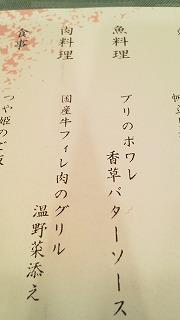 魚料理
ブリのポワレ
香草バターソース
肉料理
国産牛フィレ肉のグリル
温野菜添え
食事
つや姫のご飯